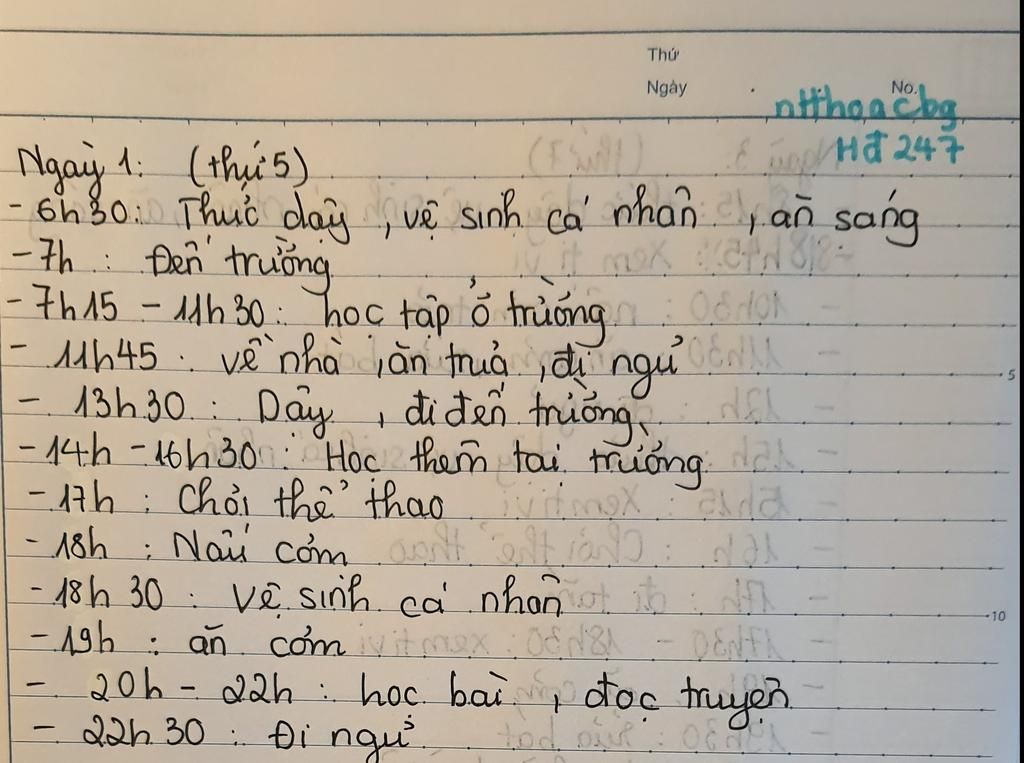 Thứ
Ngày
No.
nHhoacbg
Hđ 247
Ngày 1: (thứ 5)
- 6h30: Thức dậy, vệ sinh cá nhân, ăn sáng
- 7h: Đến trường
- 7h15 - 11h30: học tập ở trường
- 11h45: về nhà, ăn trưa, đi ngủ
- 13h30: Dậy, đi đến trường
- 14h - 16h30: Học thêm tại trường
- 17h: Chơi thể thao
- 18h: Nấu cơm
- 18h 30: Vệ sinh cá nhân
- 19h: ăn cơm
- 20h - 22h: học bài, đọc truyện
- 22h 30: Đi ngủ
5
10